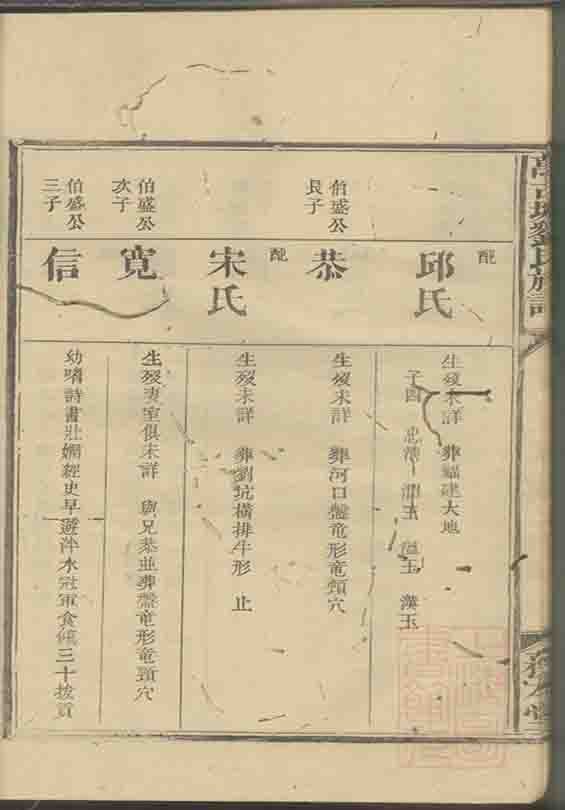 劉氏族譜
配
邱氏
生歿未詳 葬福建大地
子四 玉 玉 漢玉
伯盛公
長子
恭
生歿未詳 葬河口盤竜形竜頸穴
配
宋氏
生歿未詳 葬劉坑橫排牛形 止
伯盛公
次子
寬
生歿妻室俱未詳 與兄恭並葬盤竜形竜頸穴
伯盛公
三子
信
幼嗜詩書壯嫻經史早遊泮水冠軍食餼三十拔貢